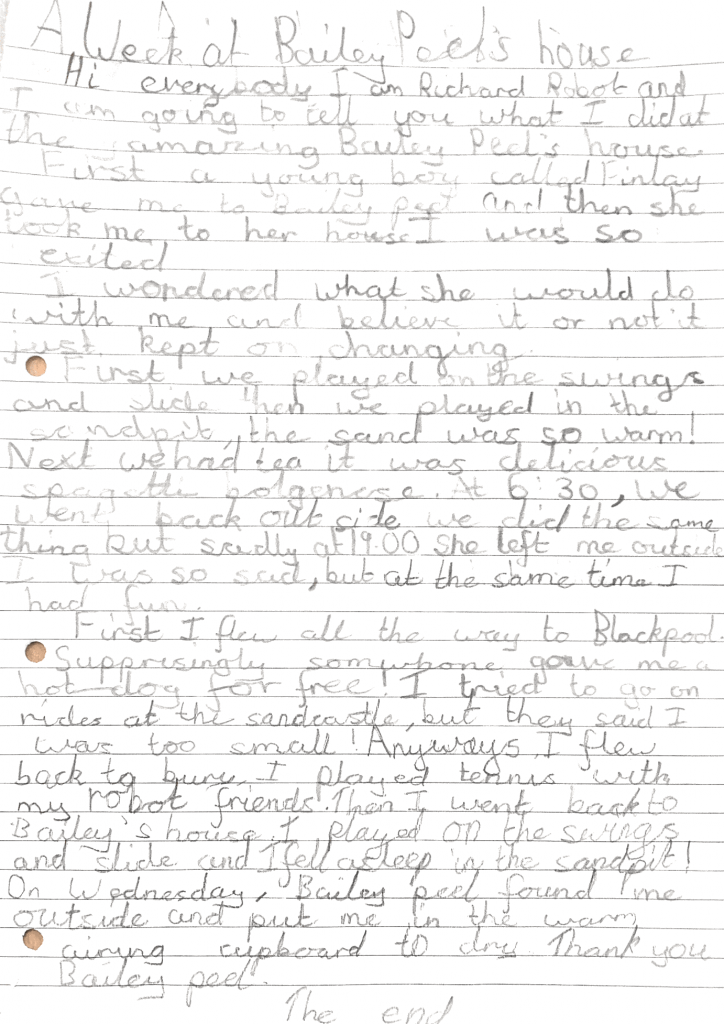 A Week at Bailey Peel's house
Hi everybody I am Richard Robot and
I am going to tell you what I did at
the amazing Bailey Peel's house.
First a young boy called Finlay
gave me to Bailey peel and then she
took me to her house I was so
exited
I wondered what she would do
with me and believe it or not it
just kept on changing.
First we played on the swings
and slide then we played in the
sandpit, the sand was so warm!
Next we had tea it was delicious
spagetti bolgenese. At 6:30, we
went back out side we did the same
thing but sadly at 19:00 she left me outside
I was so sad, but at the same time I
had fun.
First I flew all the way to Blackpool.
Supprisingly somwhone gave me a
hot dog for free! I tried to go on
rides at the sandcastle, but they said I
was too small! Anyways I flew
back to bury. I played tennis with
my robot friends. Then I went back to
Bailey's house. I played on the swings
and slide and I fell asleep in the sandpit!
On Wednesday, Bailey peel found me
outside and put me in the warm
airying cupboard to dry. Thank you
Bailey peel.
The end